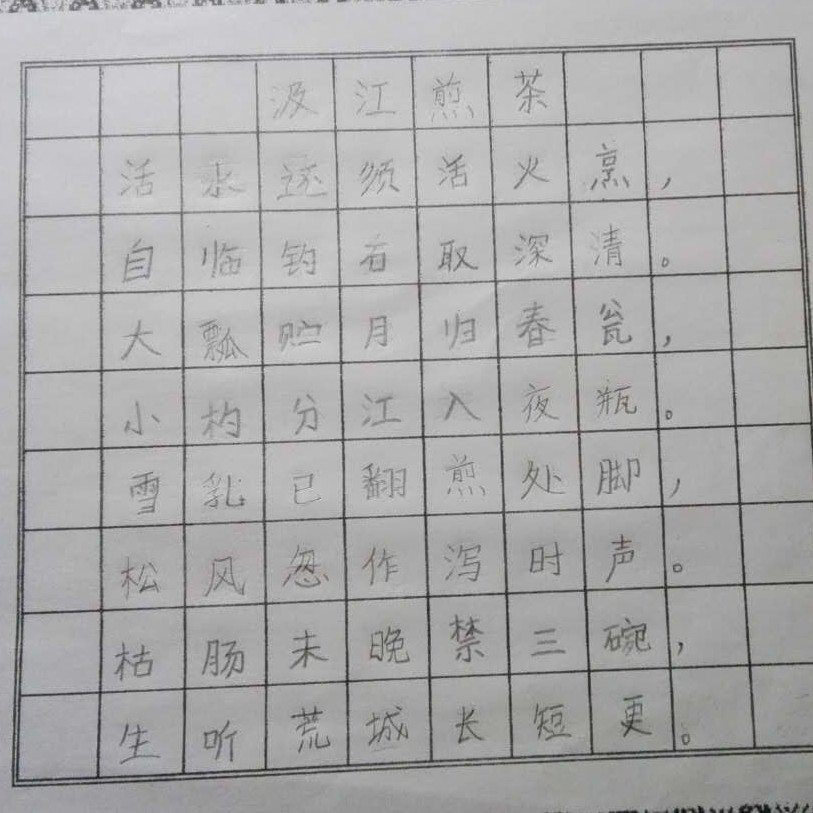 汲江煎茶
活水还须活火烹，
自临钓石取深清。
大瓢贮月归春瓮，
小杓分江入夜瓶。
雪乳已翻煎处脚，
松风忽作泻时声。
枯肠未晚禁三碗，
生听荒城长短更。